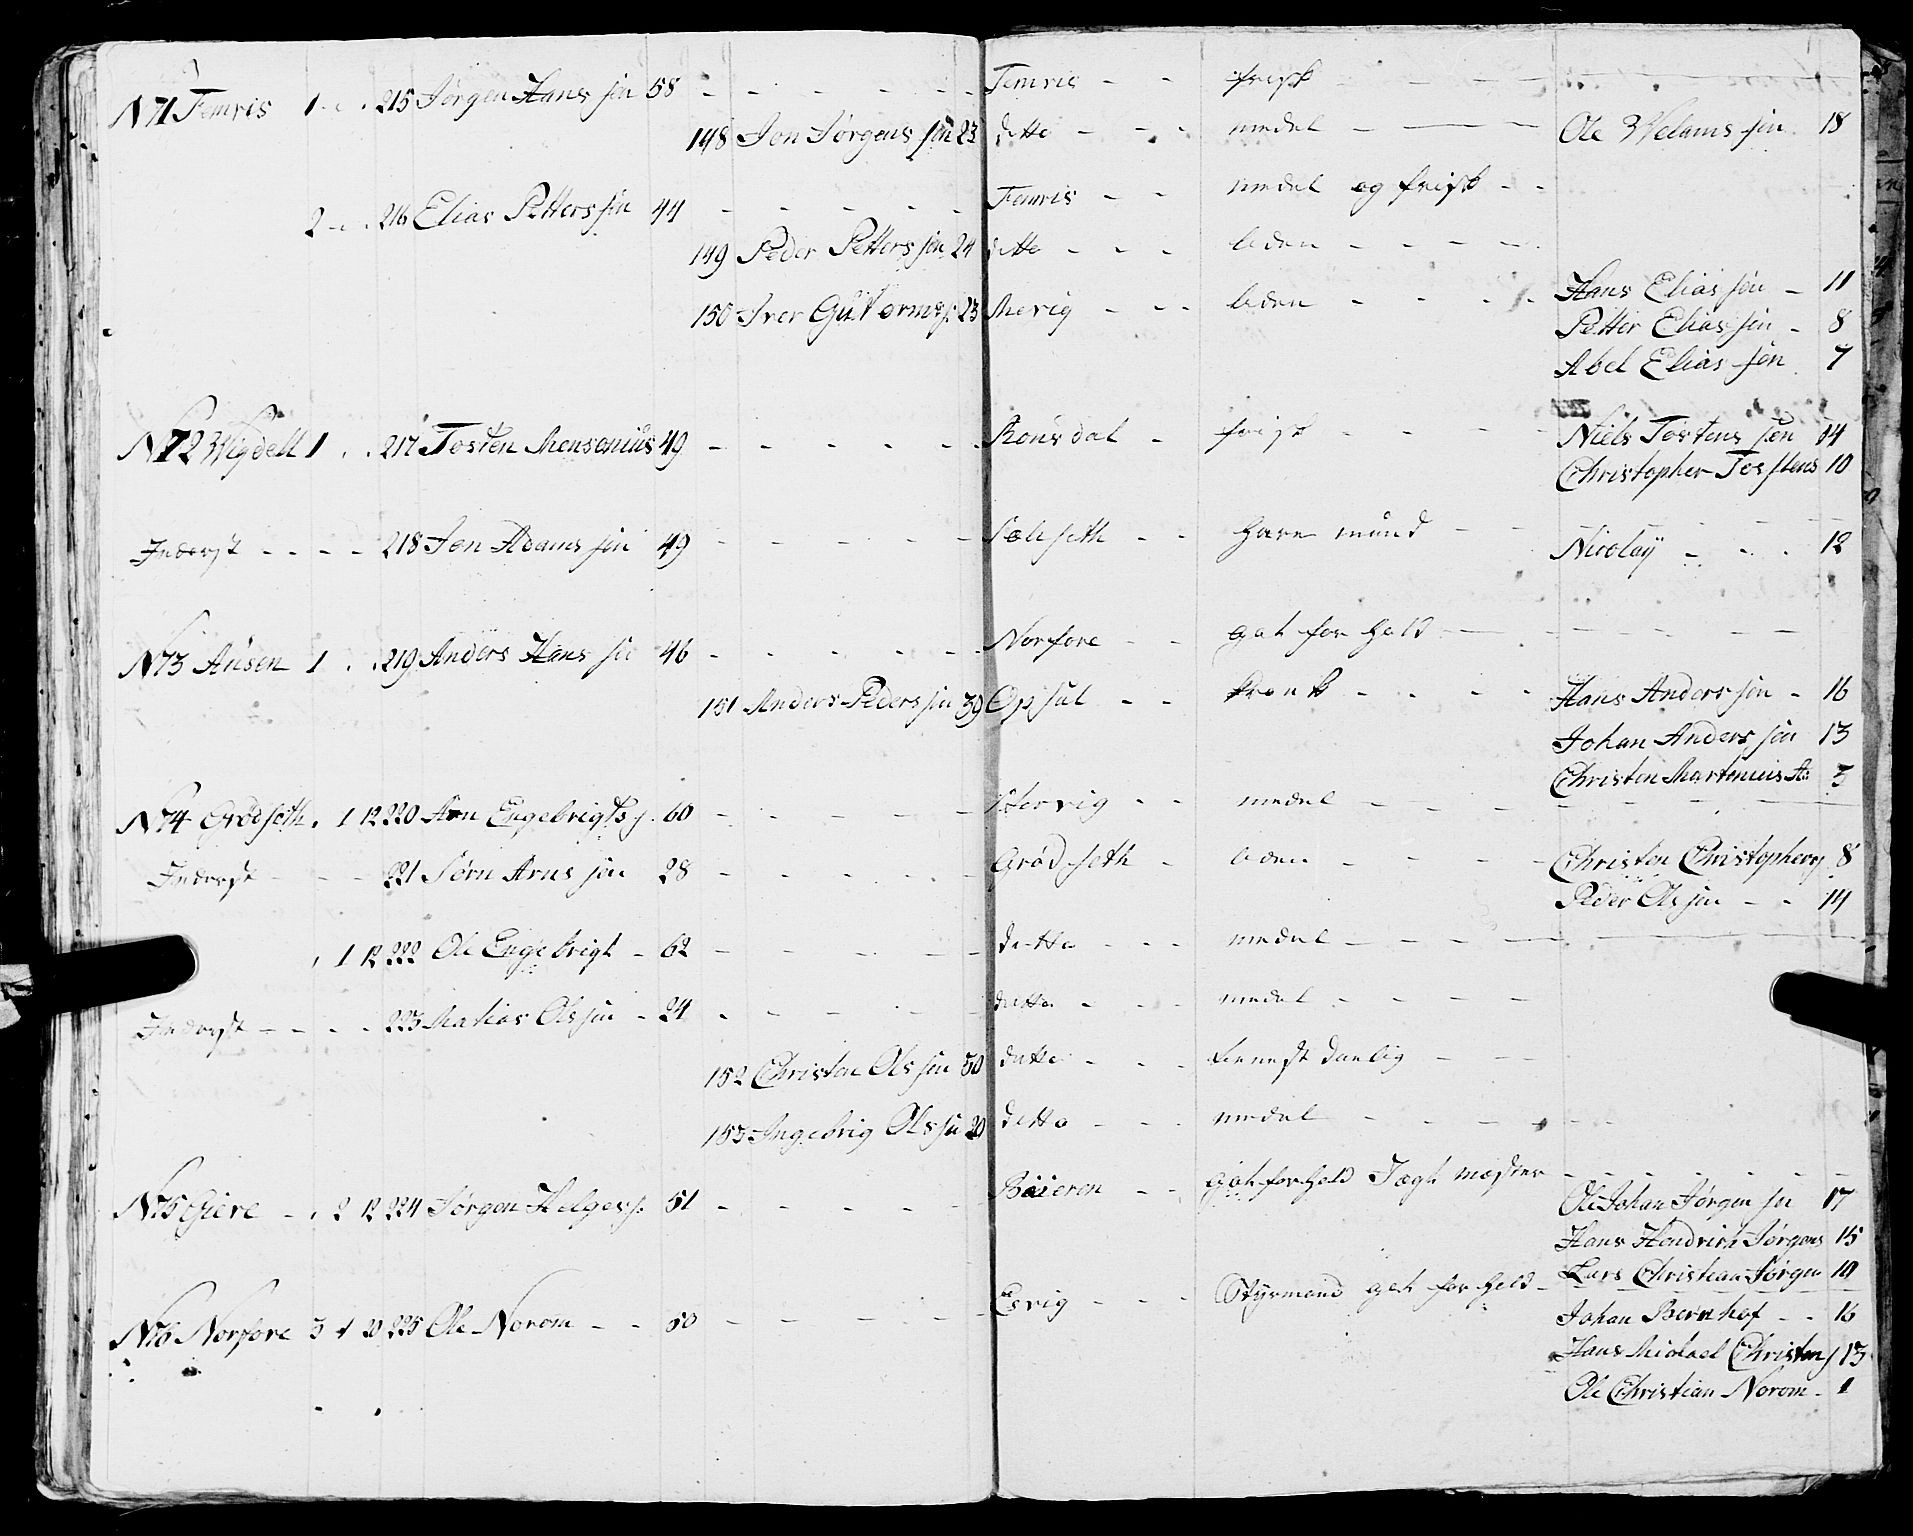 N 71 Femris 1 - . . 215 Jørgen Hans søn 58 - - - - - - Femris - - frisk - - - -
148 Jon Jørgens søn 23 ditto - - - medel - - - Ole Welams søn 18
2 - . . 216 Elias Petters søn 44 - - - - - Femris - - medel og frisk - -
149 Peder Petters søn 24 ditto - - - liden - - - -
150 Iver Guttorms s. 23 Mevig - - - liden - - - - Hans Elias søn - 11
Petter Elias søn - 8
Abel Elias søn 7
N 72 Wigdell 1 . . 217 Tosten Monsenius 49 - - - - - - Ronsdal - frisk - - - Niels Tostens søn 14
Christopher Tostens 10
Inderst - - - - 218 Jon Adams søn 49 - - - - - Soliseth - - Hare mund - - Nicolaÿ - - . 12
N 73 Ausen 1 . . 219 Anders Hans søn 46 - - - - - - Norfore - - got for Hold - - - - -
151 Andres Peders søn 39 Opsal - - krank - - - - Hans Anders søn - 16
Johan Anders søn 13
Christen Martenius A: 3
N 74 Grødseth . 1 12 220 Arn Engebrigts s. 60 - - - - - medel - - - -
Inderst - - - 221 Sørn Arns søn 28 - - - - - Grødseth - liden - - - - Christen Christophers 8
Peder Ols søn - - 14
. 1 12 222 Ole Engebrigt - 62 - - - - - ditto - - - medel - - - -
Inderst - - - - 223 Matias Ols søn - 24 - - - - - ditto - - - medel - - - -
152 Christen Ols søn 30 ditto - - - danlig - - -
153 Ingebrig Ols søn 20 ditto - - - medel - - - - -
N 75 Giere - . 2 12 224 Jørgen Helges s. 51 - - - - - Bæieren - - got for Hold Jægt mæster - - - - -
Ole Johan Jørgen søn 17
Hans Hendrick Jørgens 15
Lars Christian Jørgen 10
N 76 Norfore 3 1 20 225 Ole Norom - - 50 - - - - - - Esvig - - - Styrmand got for Hold -
Johan Bernhof - - 16
Hans Michael Christen s 13
Ole Christian Norom - 1